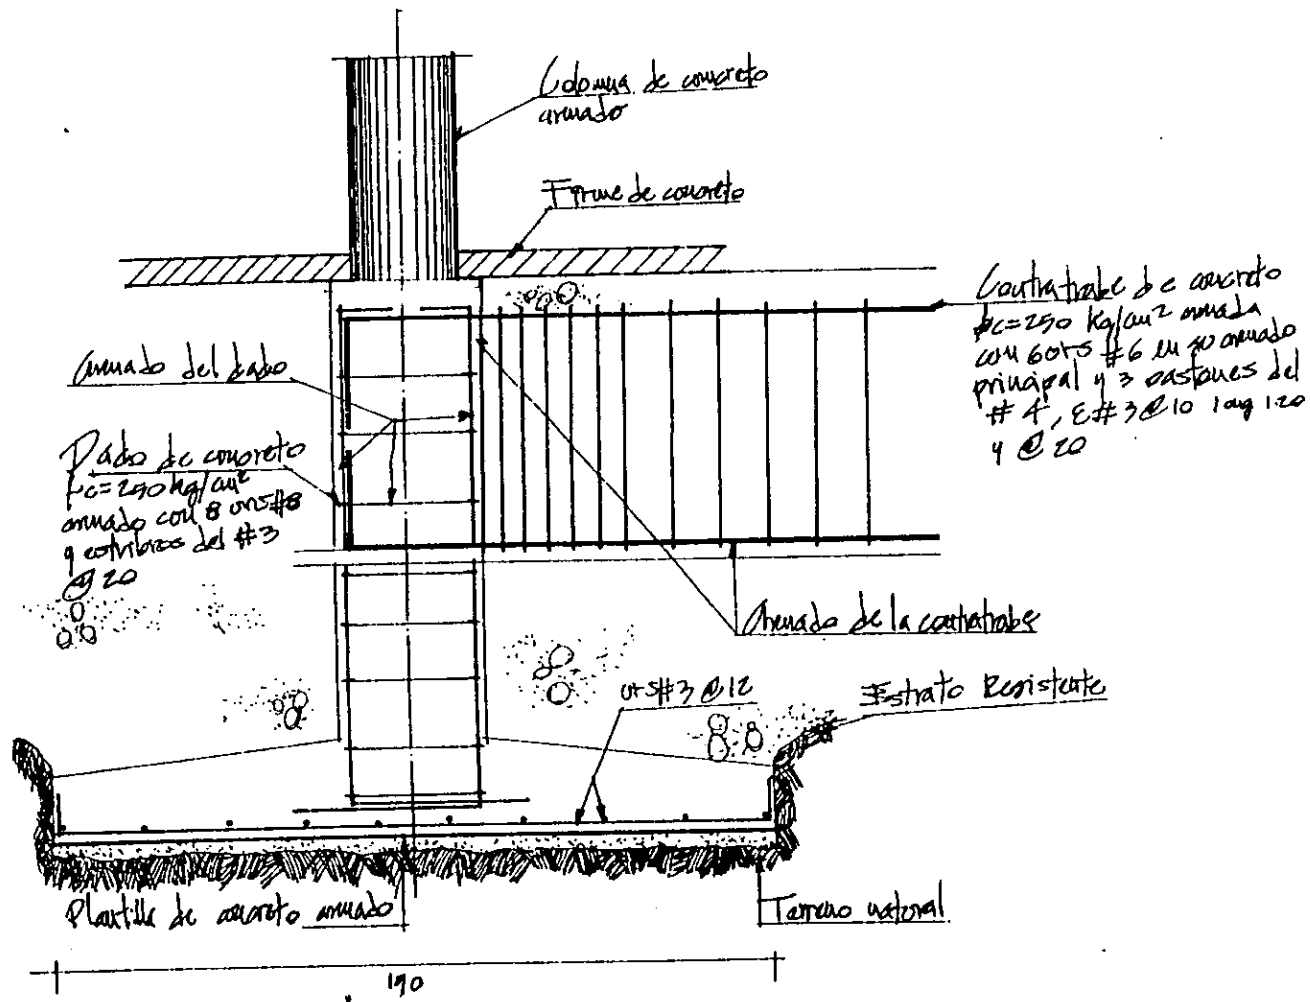 Columna de concreto
armado
Firme de concreto
Contratrabe de concreto
f'c=250 kg/cm² armada
con 6 vrs #6 en su armado
principal y 3 bastones del
# 4, E#3 @ 10 1.20
y @ 20
Armado del dado
Dado de concreto
f'c=250 kg/cm²
armado con 8 vrs #8
y estribos del #3
@ 20
Armado de la contratrabe
vrs #3 @ 12
Estrato Resistente
Plantilla de concreto armado
Terreno natural
190